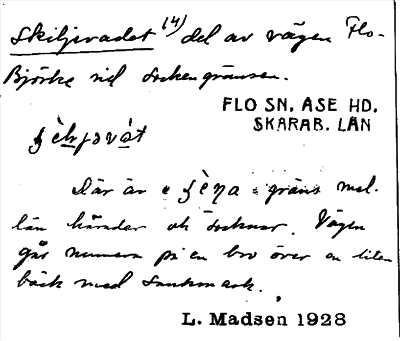 Skiljevadet 14) del av vägen Flo-
Björke vid sockengränsen.
FLO SN. ÅSE HD.
SKARAB. LÄN
Där är e = gräns mel-
lan härader och socknar. Vägen
går numera på en bro över en liten
bäck med sankmark.
L. Madsen 1928